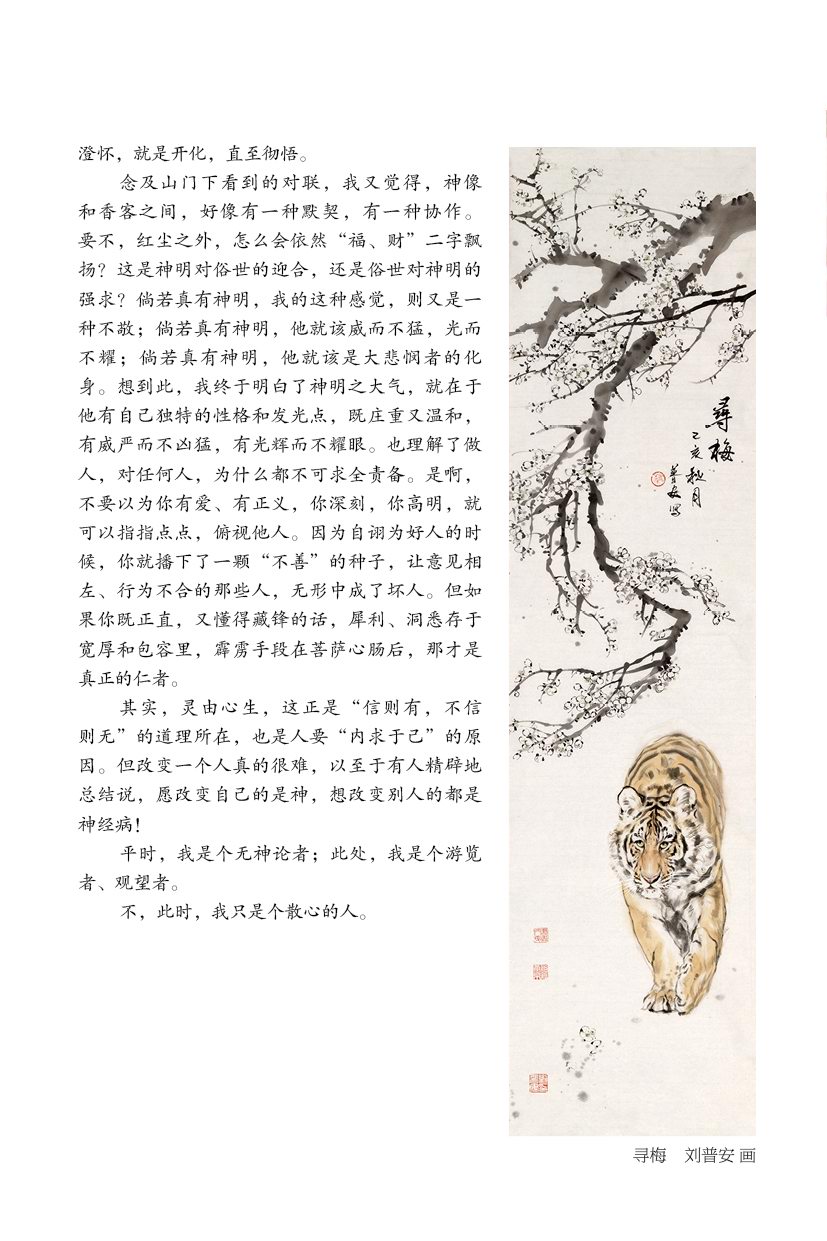 澄怀，就是开化，直至彻悟。
念及山门下看到的对联，我又觉得，神像
和香客之间，好像有一种默契，有一种协作。
要不，红尘之外，怎么会依然“福、财”二字飘
扬？这是神明对俗世的迎合，还是俗世对神明的
强求？倘若真有神明，我的这种感觉，则又是一
种不敬；倘若真有神明，他就该威而不猛，光而
不耀；倘若真有神明，他就该是大悲悯者的化
身。想到此，我终于明白了神明之大气，就在于
他有自己独特的性格和发光点，既庄重又温和，
有威严而不凶猛，有光辉而不耀眼。也理解了做
人，对任何人，为什么都不可求全责备。是啊，
不要以为你有爱、有正义，你深刻，你高明，就
可以指指点点，俯视他人。因为自诩为好人的时
候，你就播下了一颗“不善”的种子，让意见相
左、行为不合的那些人，无形中成了坏人。但如
果你既正直，又懂得藏锋的话，犀利、洞悉存于
宽厚和包容里，霹雳手段在菩萨心肠后，那才是
真正的仁者。
其实，灵由心生，这正是“信则有，不信
则无”的道理所在，也是人要“内求于己”的原
因。但改变一个人真的很难，以至于有人精辟地
总结说，愿改变自己的是神，想改变别人的都是
神经病！
平时，我是个无神论者；此处，我是个游览
者、观望者。
不，此时，我只是个散心的人。
尋梅
乙亥秋月
普安寫
寻梅 刘普安 画